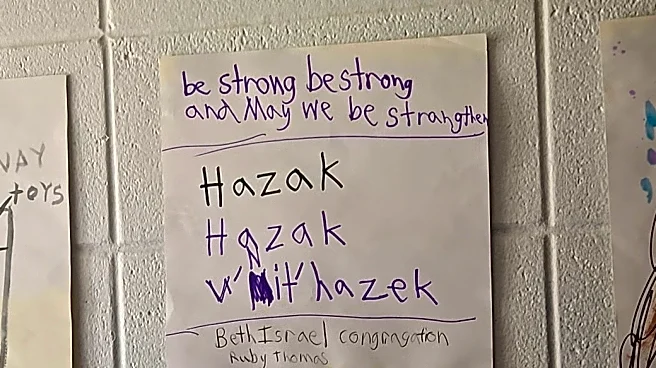 be strong be strong
and May we be strangthen
Hazak
Hazak
v'nit'hazek
Beth Israel congragation
Ruby Thomas
WAY
toys